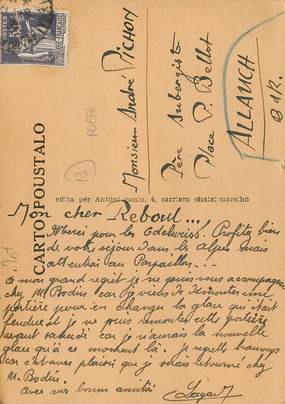 POSTES
CARTO POUSTALO
Monsieur André PICHON
Père Aubergiste
Place P. Bellot
ALLAUCH
B d R.
edita pèr Antòni conio, 4, carriero chaix; marsiho
Mon cher Reboul...
Merci pour les Edelweiss. Profitez bien
de votre séjour dans les Alpes mais
attention au Parpaillon...
à mon grand regret je ne puis vous accompagner
chez Mr Bodin car je viens de démonter une
portière pour en changer la glace qui était
fendue et je ne puis remonter cette portière
avant samedi car je n'aurais la nouvelle
glace qu'à ce moment là. je regrette beaucoup
car c'est avec plaisir que je serais retourné chez
M. Bodin.
avec mes bonnes amitiés